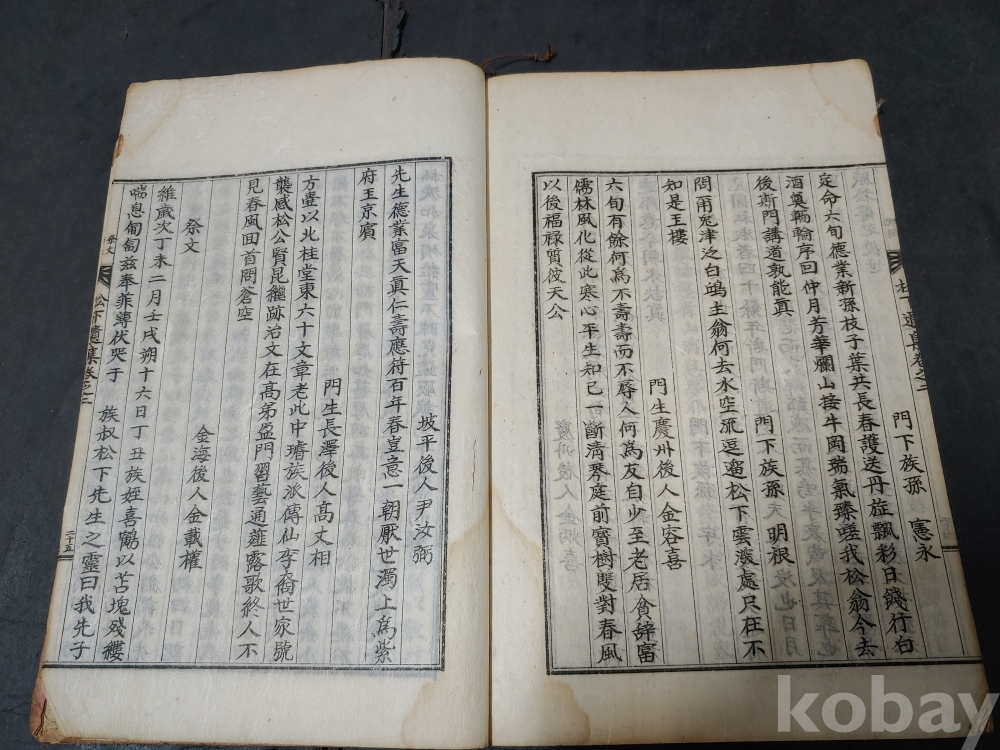 門下族孫 憲永
定命六旬德業新孫枝子葉共長春護送丹旌飄彩日餞行白
酒奠輀輪序回仲月芳華爛山接牛岡瑞氣臻嗟我松翁今去
後斯門講道孰能眞
門下族孫 明根
問甫 津之白鷗主翁何去水空流逗遛松下雲深處尺在不
知是玉樓
門生慶州後人金容喜
六旬有餘何爲不壽壽而不辱人何爲友自少至老居貧辭富
儒林風化從此寒心平生知己一斷淸琴庭前寶樹雙對春風
以後福祿質彼天公
坡平後人尹汝弼
先生德業富天眞仁壽應符百年春豈意一朝厭世濁上爲紫
府玉京賓
門生長澤後人高丈相
方壺以北桂堂東六十文章老此中璿族派傳仙李裔世家號
襲感松公賢昆繼跡治文在高弟盈門習藝通薤露歌終人不
見春風回首問蒼空
金海後人金載權
祭文
維歲次丁未二月壬戌朔十六日丁丑族姪喜鶴以苫塊殘縷
喘息匍匐玆奉菲薄伏哭于 族叔松下先生之靈曰我先子
祭文
松下遺集卷之二
三十五
松下遺集卷之二
kobay